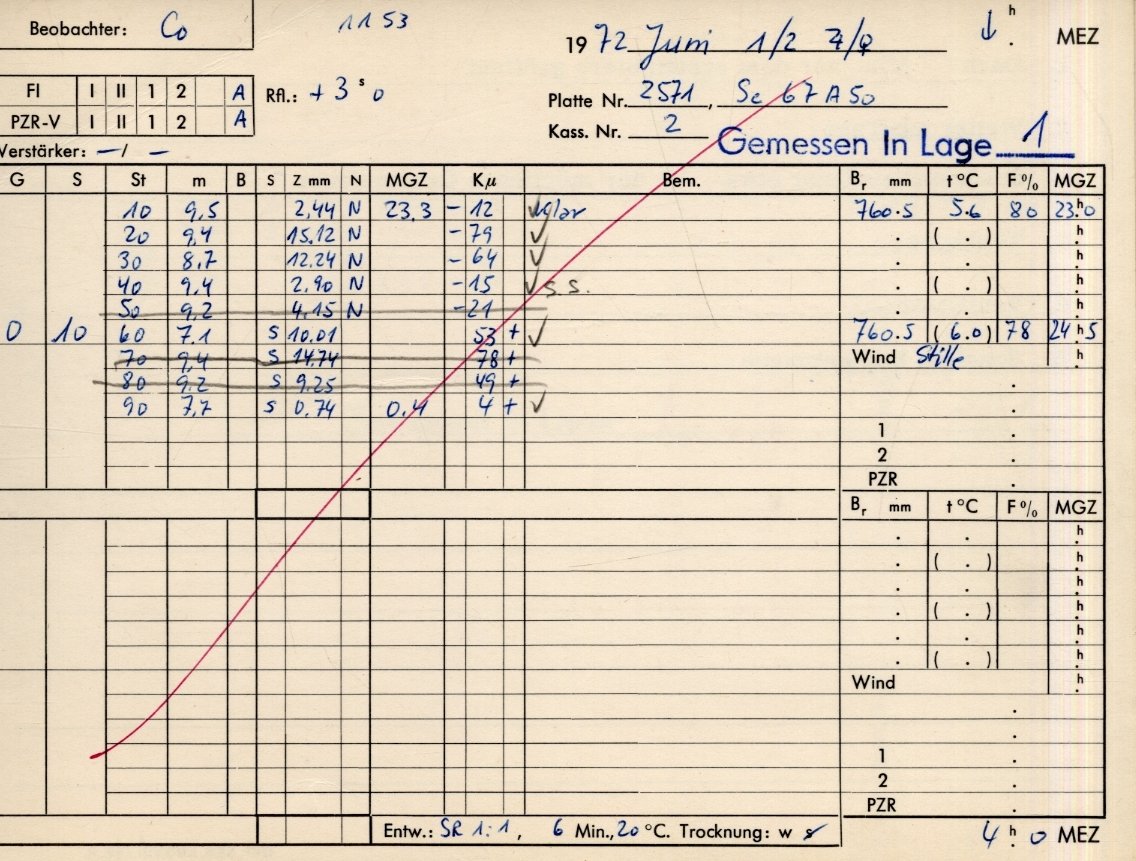 Beobachter: Co
1153
1972 Juni 1/2
h MEZ
FI I II 1 2 A
PZR-V I II 1 2 A
Rfl.: + 3 s 0
Platte Nr. 2571, Sc 67 A 50
Kass. Nr. 2
Gemessen In Lage 1
Verstärker: – / –
G S St m B S Z mm N MGZ Kμ Bem. Br mm t °C F % MGZ
10 9,5 2,44 N 23.3 - 12 ✓ klar 760.5 5.6 80 23 h 0
20 9,4 15.12 N - 79 ✓ . ( . ) h
30 8,7 12.24 N - 64 ✓ . . h
40 9,4 2.90 N - 15 ✓ s.s. . ( . ) h
50 9,2 4.15 N - 21 . . h
0 10 60 7.1 S 10.01 53 + ✓ 760.5 ( 6.0 ) 78 24 h 5
70 9,4 S 14.74 78 + Wind Stille h
80 9.2 S 9.25 49 +
90 7,7 S 0.74 0.4 4 + ✓
1
2
PZR
Br mm t °C F % MGZ
. . h
. ( . ) h
. . h
. ( . ) h
. . h
. ( . ) h
Wind h
1
2
PZR
Entw.: SR 1:1, 6 Min., 20 °C. Trocknung: w s
4 h 0 MEZ